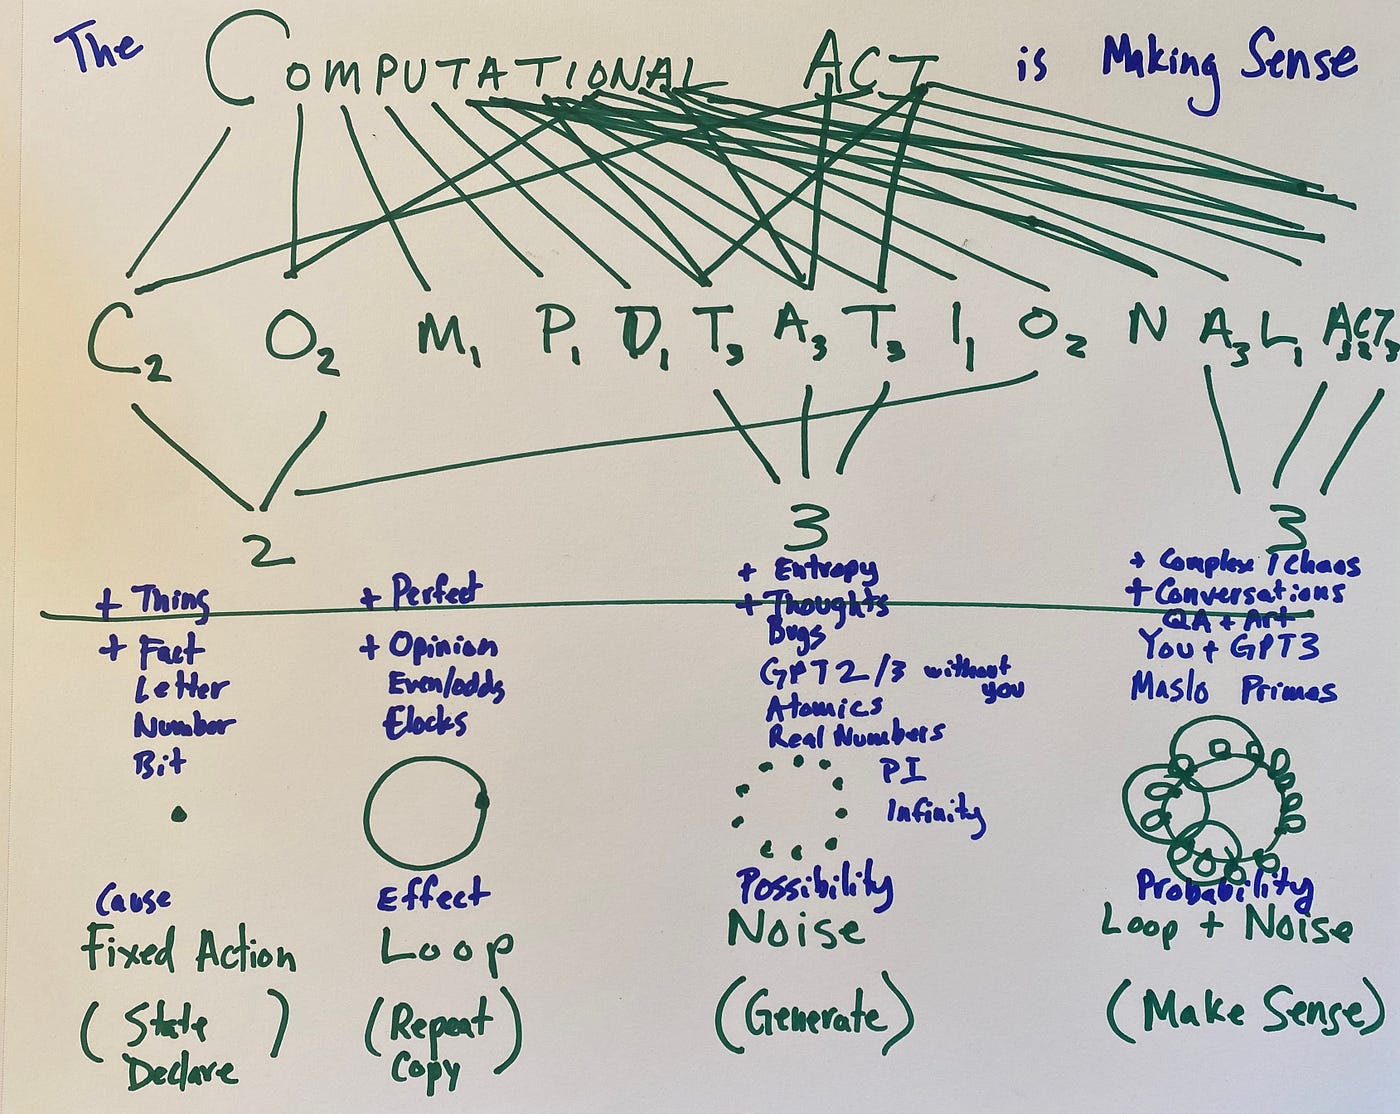 The COMPUTATIONAL ACT is Making Sense
C2 O2 M1 P1 U1 T3 A3 T3 I1 O2 N A3 L1 A3 C2 T3
2 3 3
+ Thing
+ Fact
Letter
Number
Bit
Cause
Fixed Action
(State
Declare)
+ Perfect
+ Opinion
Even/odds
Clocks
Effect
Loop
(Repeat
Copy)
+ Entropy
+ Thoughts
Bugs
GPT2/3 without you
Atomics
Real Numbers
PI
Infinity
Possibility
Noise
(Generate)
+ Complex / Chaos
+ Conversations
QA + Art
You + GPT3
Maslo Primes
Probability
Loop + Noise
(Make Sense)